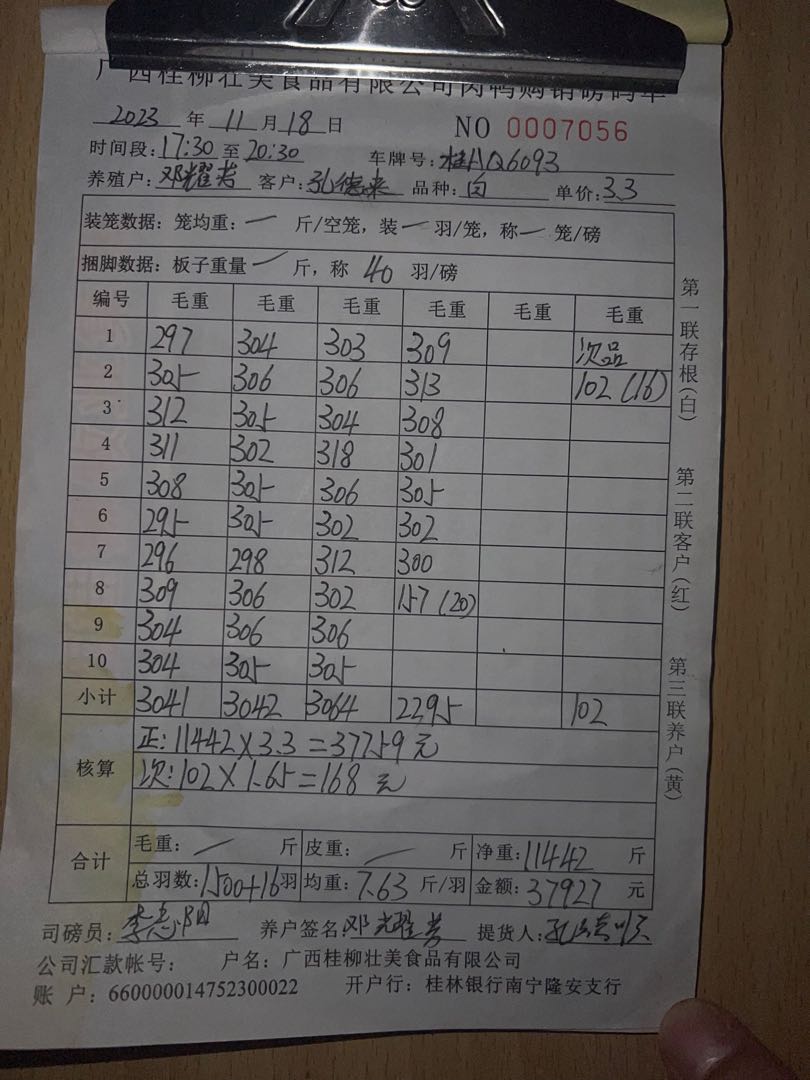 广西桂柳壮美食品有限公司肉鸭购销磅码单
2023 年 11 月 18 日 NO 0007056
时间段:17:30 至 20:30 车牌号:桂AQ6093
养殖户:邓耀芳 客户:孔德来 品种:白 单价:3.3
装笼数据: 笼均重: 一 斤/空笼, 装 一 羽/笼, 称 一 笼/磅
捆脚数据: 板子重量 一 斤, 称 40 羽/磅
编号 毛重 毛重 毛重 毛重 毛重 毛重
1 297 304 303 309 次品
2 305 306 306 313 102 (16)
3 312 305 304 308
4 311 302 318 301
5 308 305 306 305
6 295 305 302 302
7 296 298 312 300
8 309 306 302 157 (20)
9 304 306 306
10 304 305 305
小计 3041 3042 3064 2295 102
核算 正: 11442×3.3=37759元
次: 102×1.65=168元
合计 毛重: 一 斤 皮重: 一 斤 净重: 11442 斤
总羽数: 1500+16羽 均重: 7.63 斤/羽 金额: 37927 元
司磅员: 养户签名 邓耀芳 提货人:
公司汇款帐号: 户名: 广西桂柳壮美食品有限公司
账 户: 660000014752300022 开户行: 桂林银行南宁隆安支行
第一联存根(白)
第二联客户(红)
第三联养户(黄)